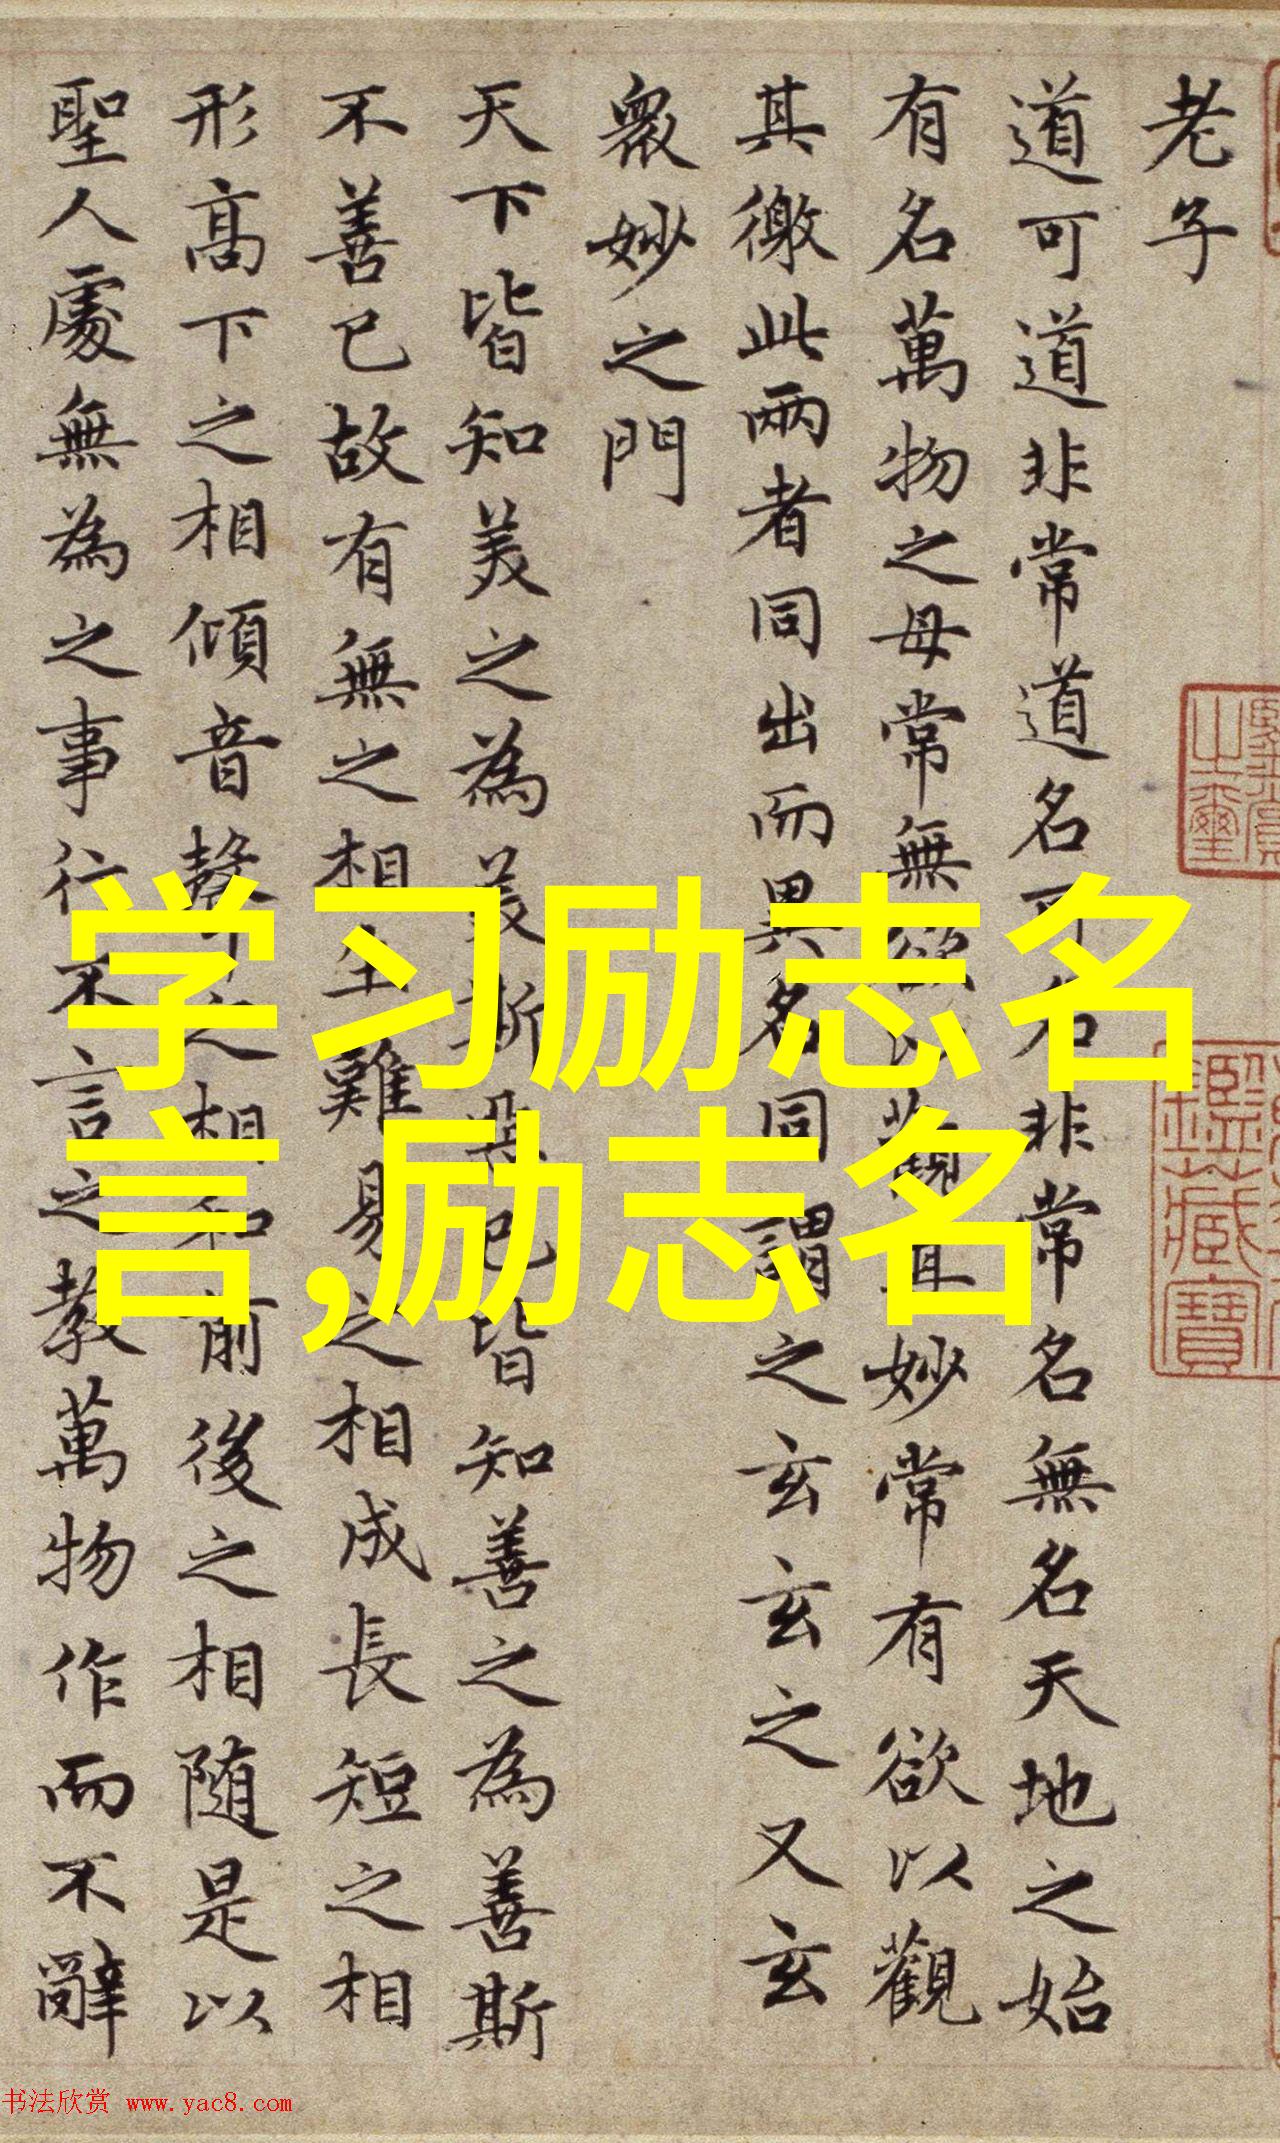 老子
道可道非常道名可名非常名無名天地之始
有名萬物之母常無欲以觀其妙常有欲以觀
其徼此兩者同出而異名同謂之玄玄之又玄
衆妙之門
天下皆知美之為美斯惡已皆知善之為善斯
不善已故有無之相生難易之相成長短之相
形高下之相傾音聲之相和前後之相随是以
聖人處無為之事行不言之教萬物作而不辭
学习励志名
言,励志名
书法欣赏 www.yac8.com